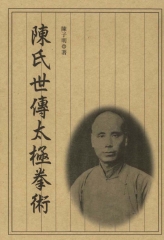 陳子明著
陳氏世傳太極拳術